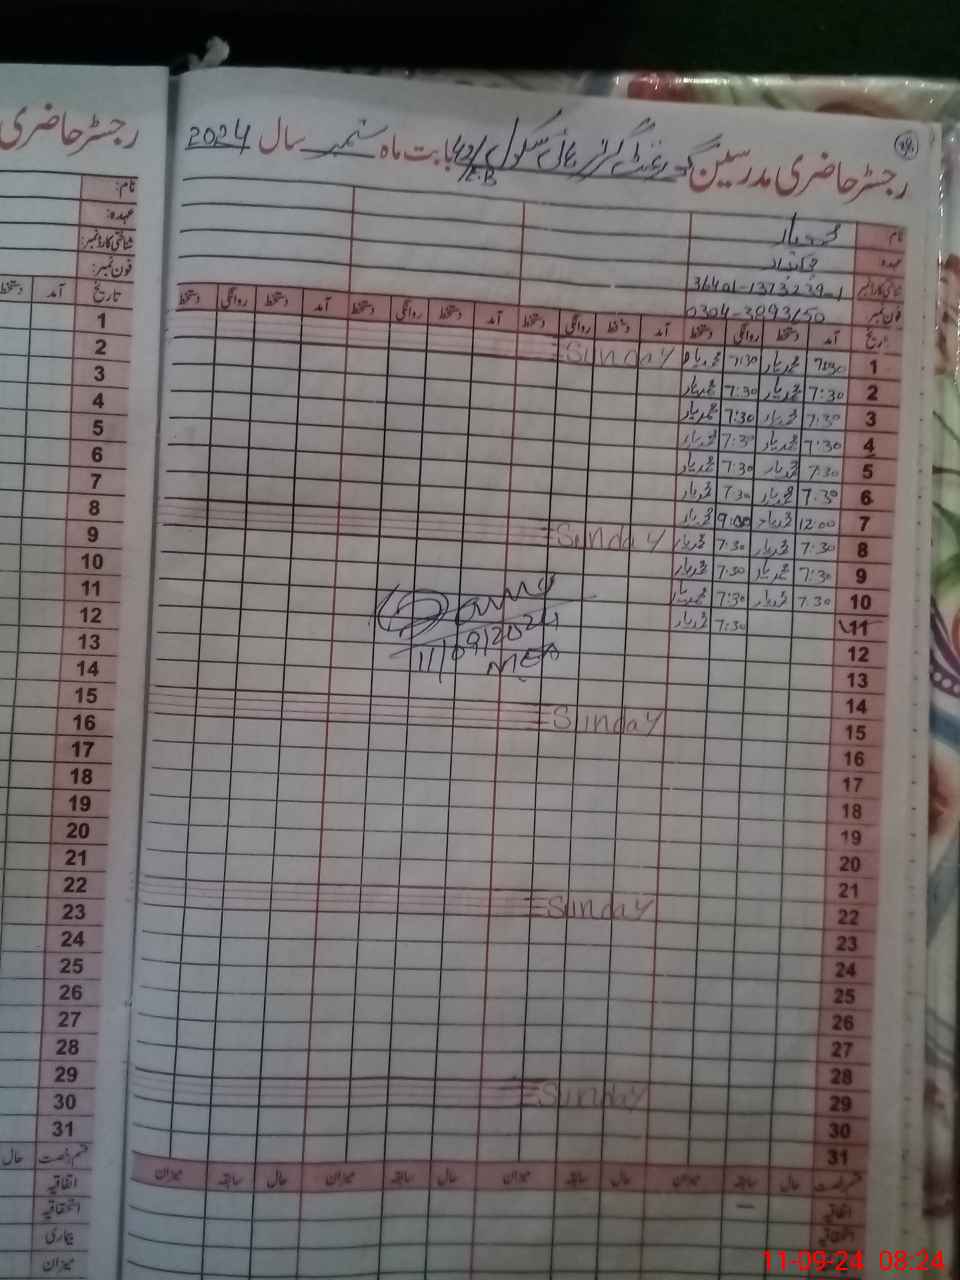 رجسٹر حاضری مدرسین گورنمنٹ گرلز ہائی سکول 42/E.B بابت ماہ ستمبر سال 2024
نام محمد یار
عہدہ چوکیدار
شناختی کارڈ نمبر
فون نمبر
تاریخ آمد دستخط روانگی دستخط آمد دستخط روانگی دستخط آمد دستخط روانگی دستخط آمد دستخط روانگی دستخط
1 7:30 محمد یار 7:30 محمد یار Sunday
2 7:30 محمد یار 7:30 محمد یار
3 7:30 محمد یار 7:30 محمد یار
4 7:30 محمد یار 7:30 محمد یار
5 7:30 محمد یار 7:30 محمد یار
6 7:30 محمد یار 7:30 محمد یار
7 12:00 محمد یار 9:00 محمد یار
8 7:30 محمد یار 7:30 محمد یار Sunday
9 7:30 محمد یار 7:30 محمد یار
10 7:30 محمد یار 7:30 محمد یار
11 7:30 محمد یار
11/09/2024
MEA
12
13
14
15 Sunday
16
17
18
19
20
21
22 Sunday
23
24
25
26
27
28
29 Sunday
30
31
قسم رخصت حال سابقہ میزان حال سابقہ میزان حال سابقہ میزان حال سابقہ میزان
اتفاقیہ —
استحقاقیہ
رجسٹر حاضری
نام:
عہدہ:
شناختی کارڈ نمبر:
فون نمبر:
تاریخ آمد دستخط
1
2
3
4
5
6
7
8
9
10
11
12
13
14
15
16
17
18
19
20
21
22
23
24
25
26
27
28
29
30
31
قسم رخصت حال
اتفاقیہ
استحقاقیہ
بیماری
میزان
11-09-24 08:24